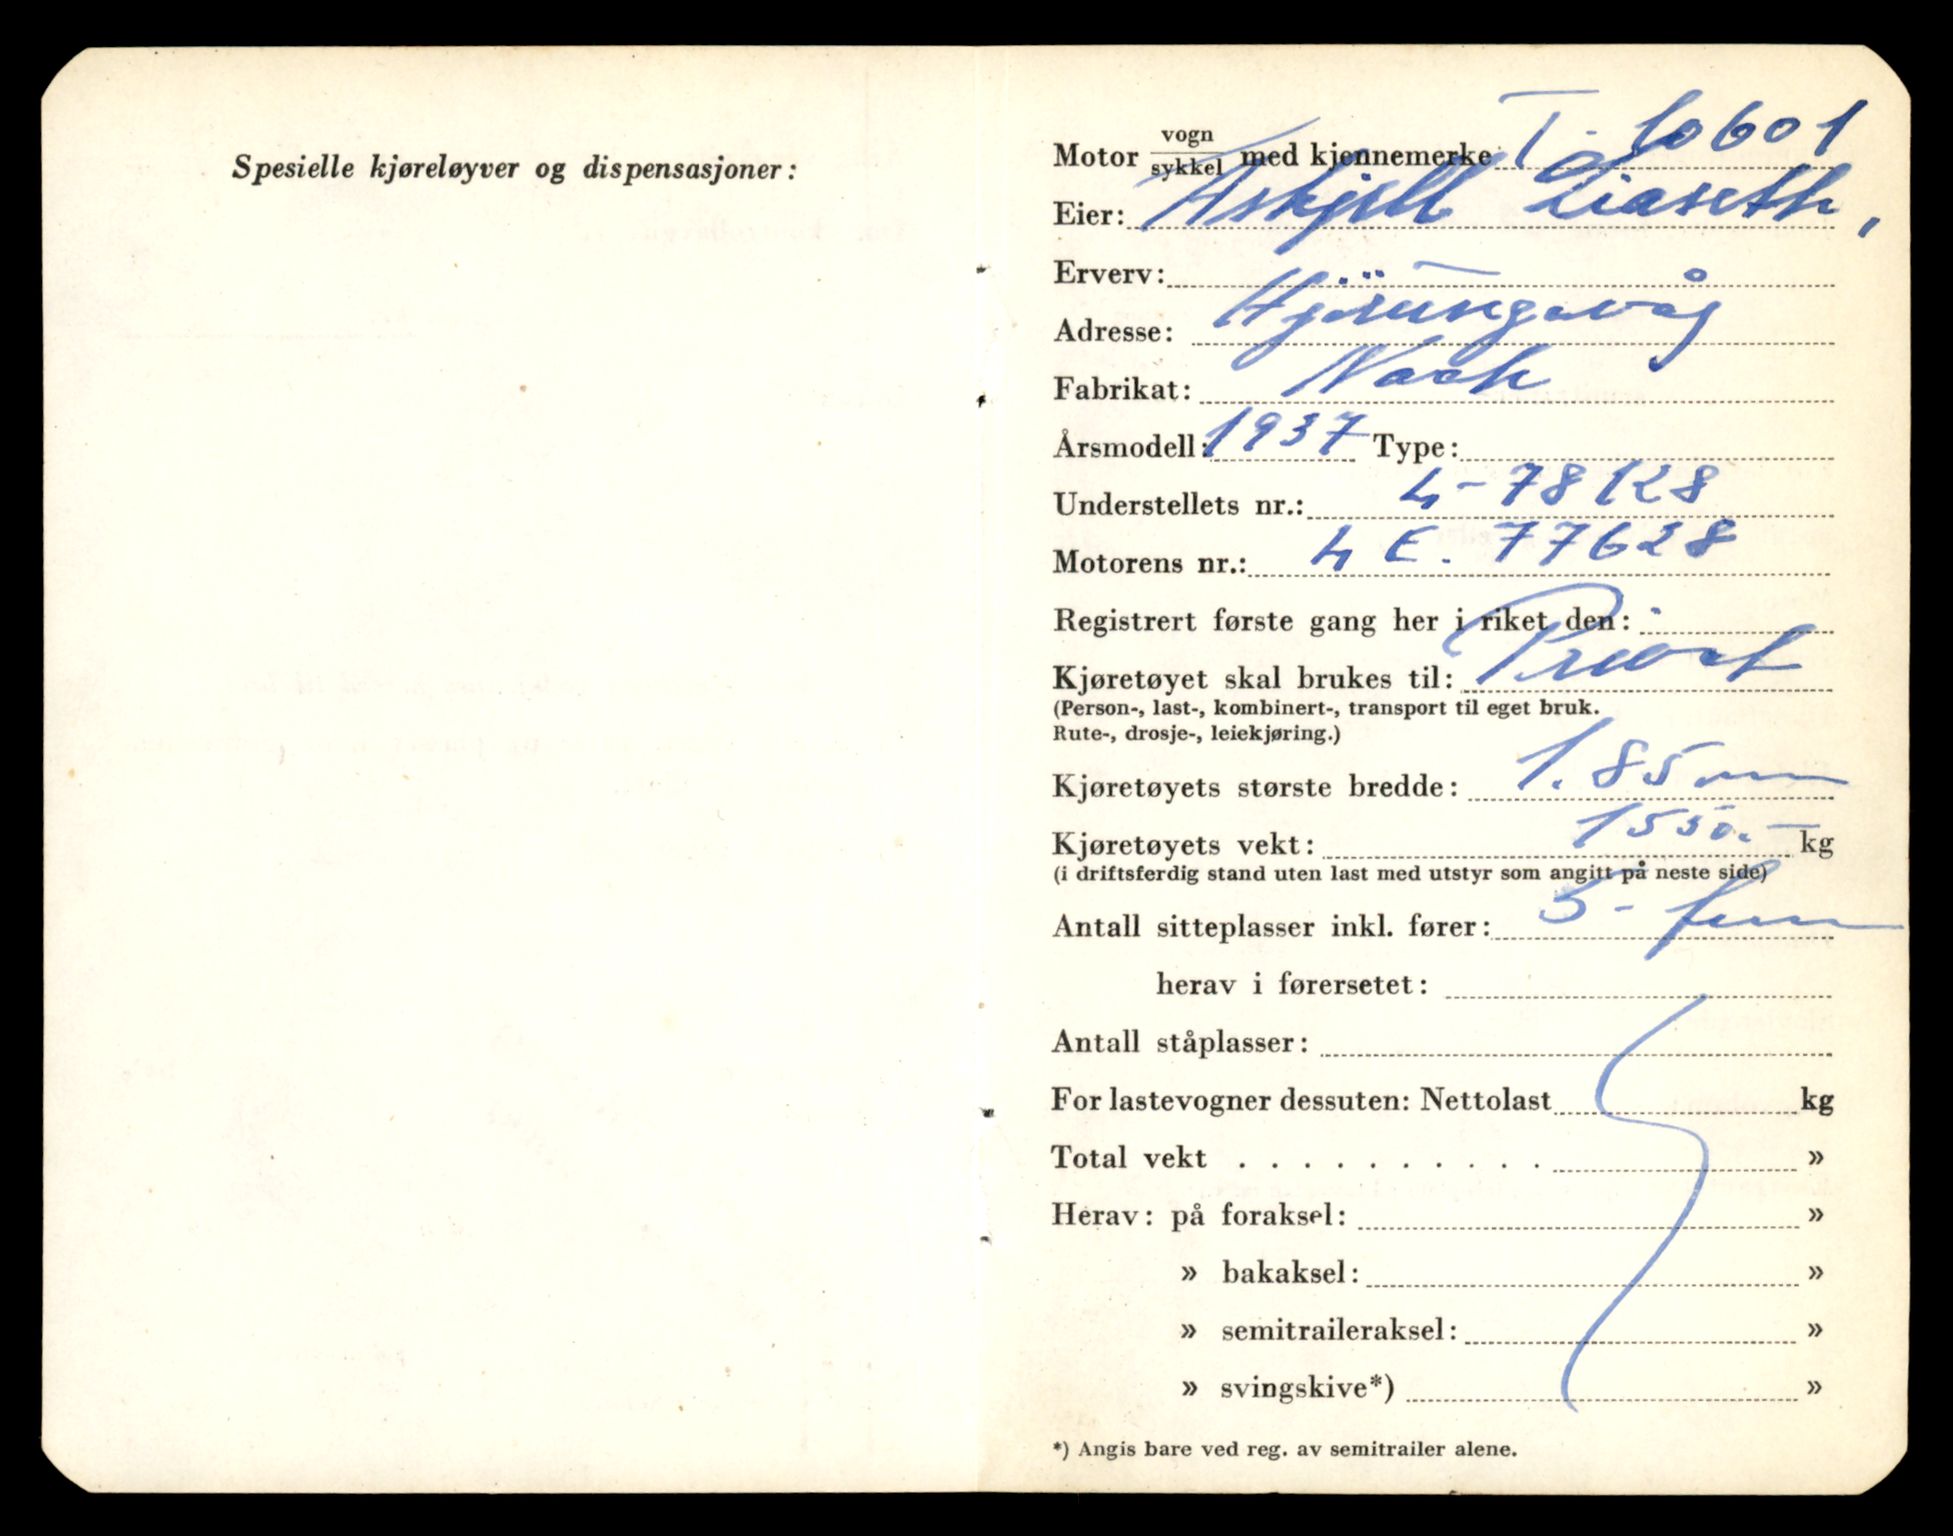 Spesielle kjøreløyver og dispensasjoner:
Motor vogn/sykkel med kjennemerke T-10601
Eier: Askjell Liaseth,
Erverv:
Adresse: Hjørungavåg
Fabrikat: Nash
Årsmodell: 1937 Type:
Understellets nr.: 4-78128
Motorens nr.: 4 E. 77628
Registrert første gang her i riket den:
Kjøretøyet skal brukes til: Privat
(Person-, last-, kombinert-, transport til eget bruk.
Rute-, drosje-, leiekjøring.)
Kjøretøyets største bredde: 1.85 m
Kjøretøyets vekt: 1550.- kg
(i driftsferdig stand uten last med utstyr som angitt på neste side)
Antall sitteplasser inkl. fører: 5- fem
herav i førersetet:
Antall ståplasser:
For lastevogner dessuten: Nettolast kg
Total vekt . . . . . . . . . . »
Herav: på foraksel: »
» bakaksel: »
» semitraileraksel: »
» svingskive*) »
*) Angis bare ved reg. av semitrailer alene.